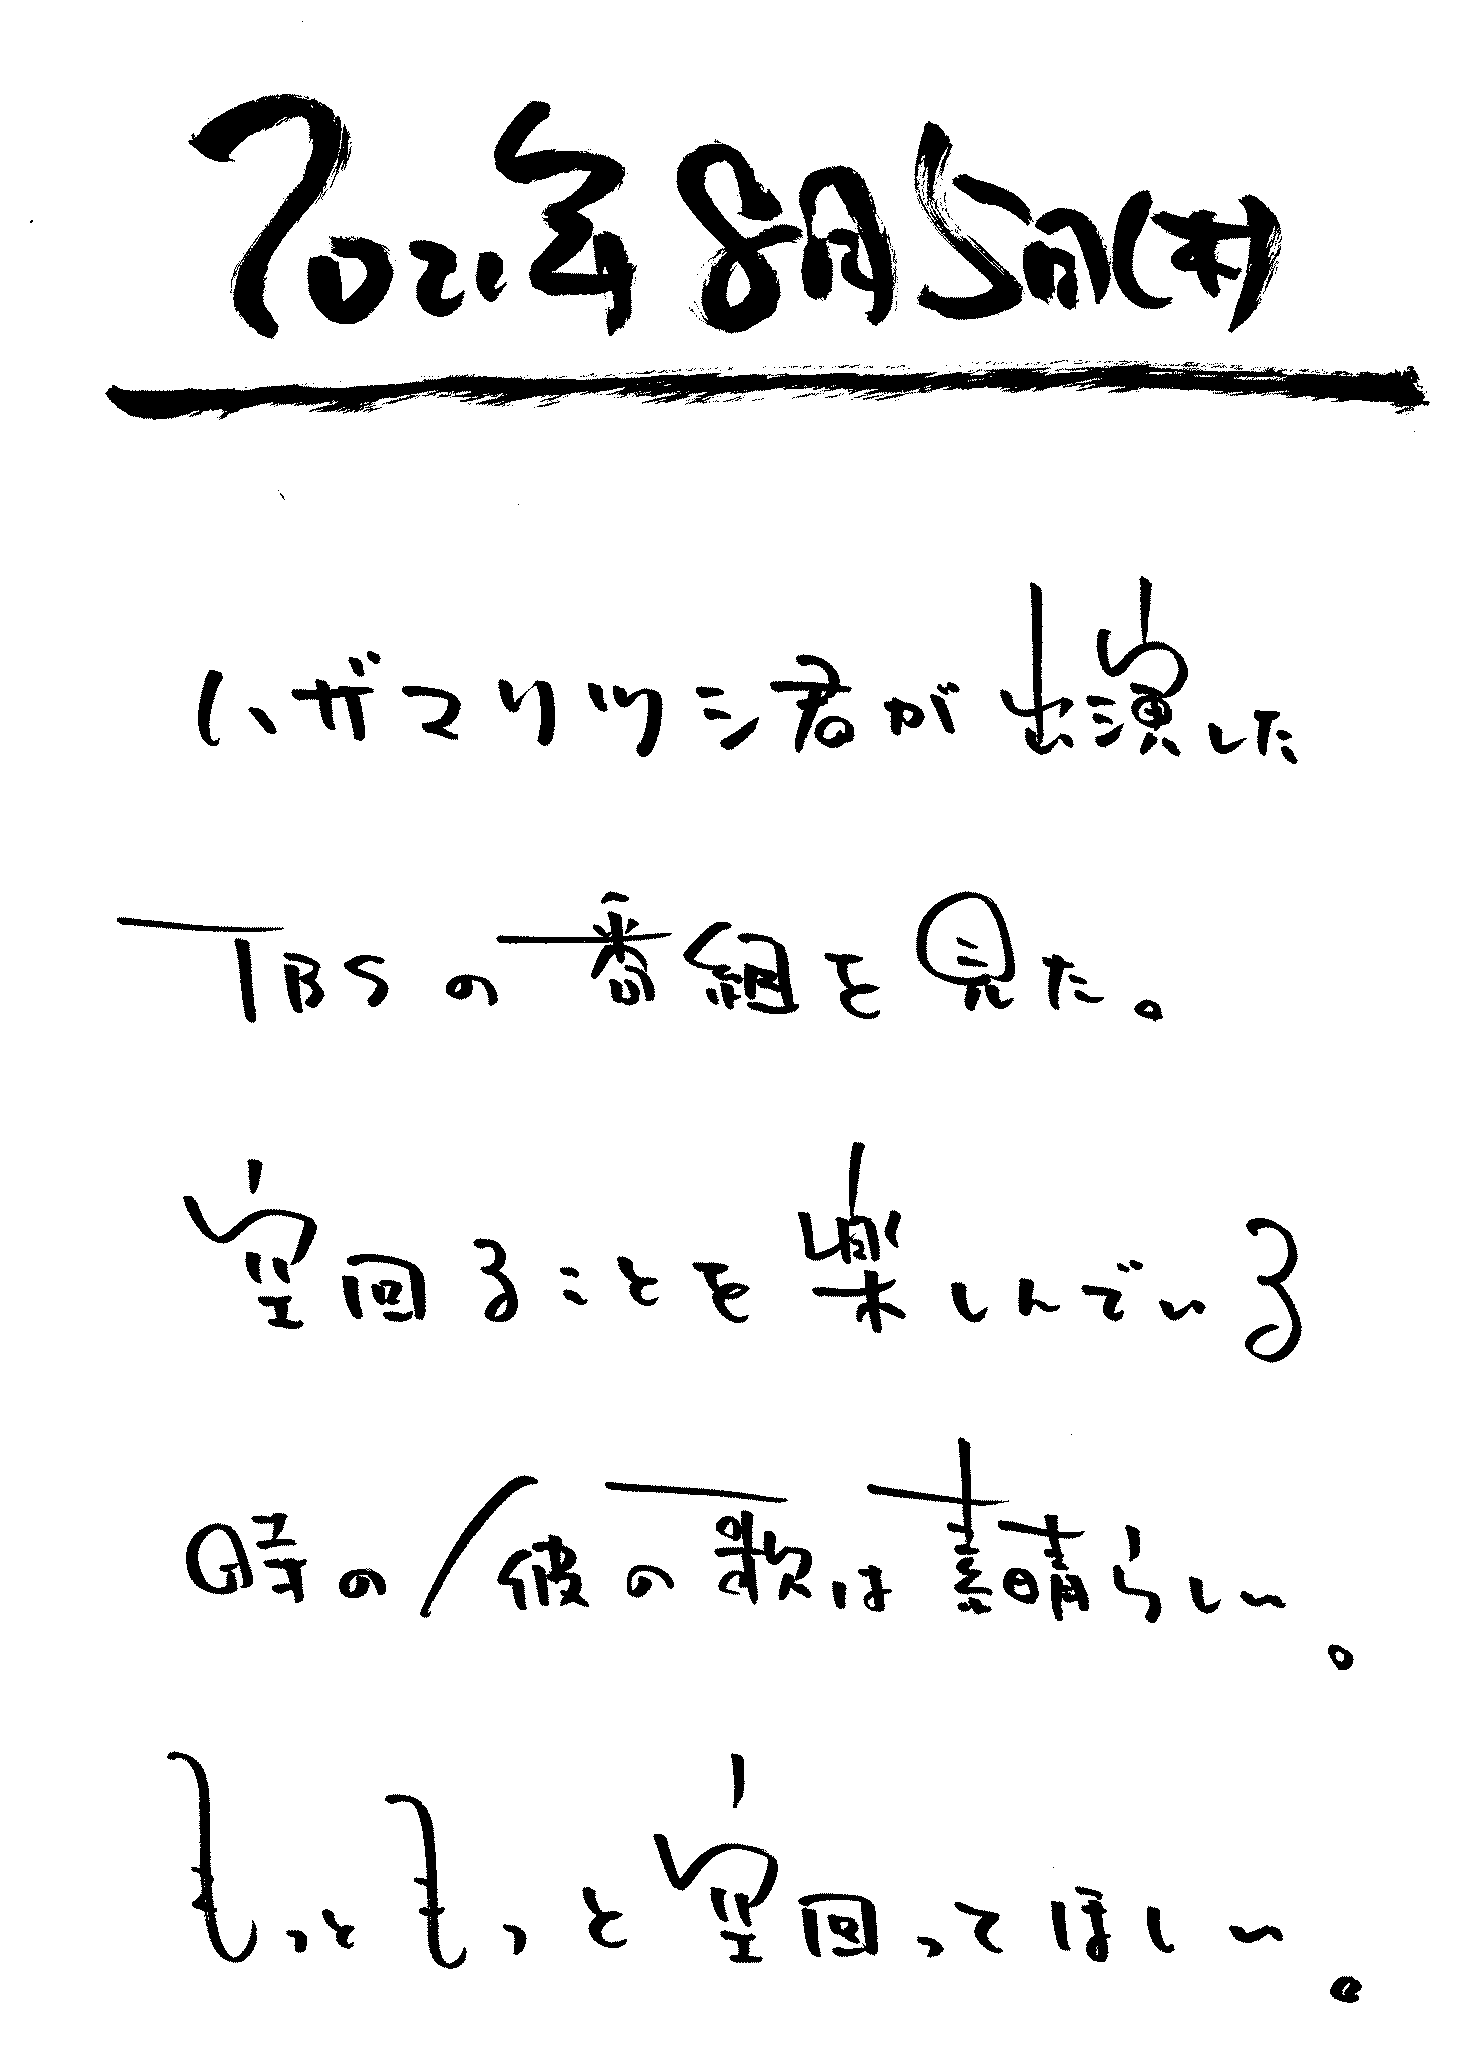 2021年8月5日(木)
ハザマリツシ君が出演した
TBSの番組を見た。
空回ることを楽しんでいる
時の彼の歌は素晴らしい。
もっともっと空回ってほしい。